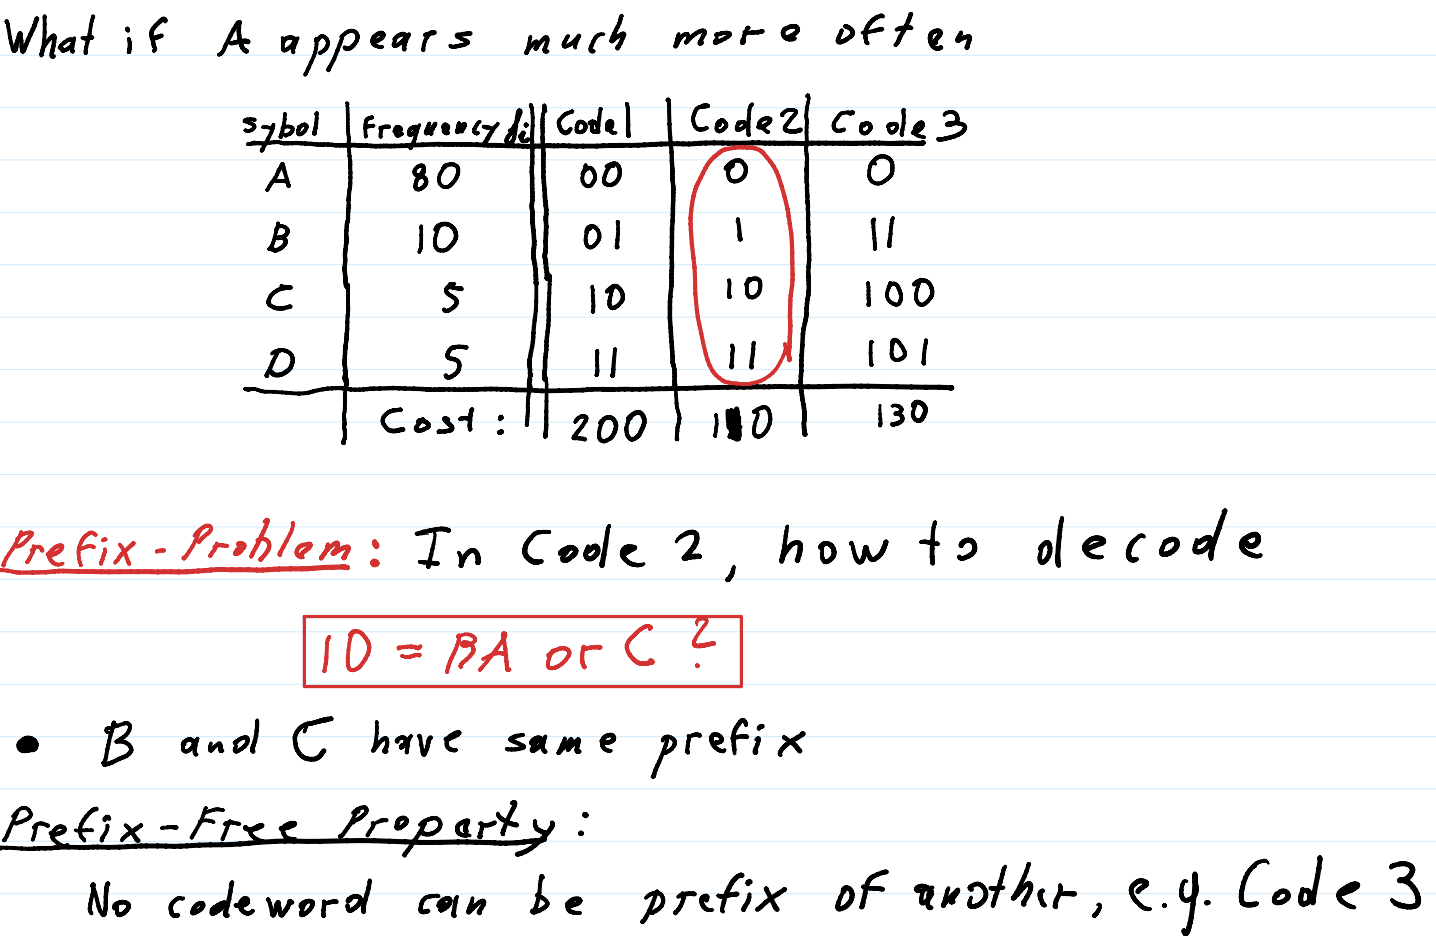 What if A appears much more often
sybol Frequency fi Code1 Code2 Code3
A 80 00 0 0
B 10 01 1 11
C 5 10 10 100
D 5 11 11 101
Cost: 200 110 130
Prefix-Problem: In Code 2, how to decode
10 = BA or C ?
• B and C have same prefix
Prefix-Free Property:
No codeword can be prefix of another, e.g. Code 3